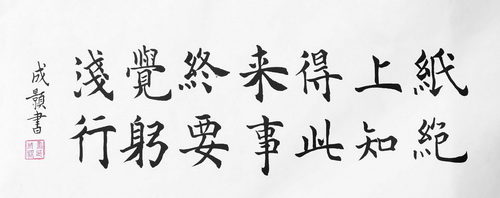 紙上得来終覺淺
絶知此事要躬行
成顥書